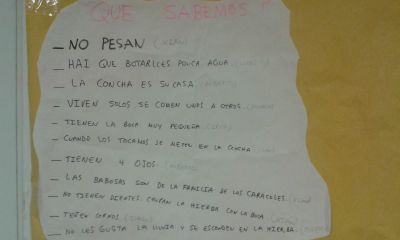 QUE SABEMOS?
_ NO PESAN
_ HAI QUE BOTARLLES POUCA AGUA
_ LA CONCHA ES SU CASA
_ VIVEN SOLOS SE COMEN UNOS A OTROS
_ TIENEN LA BOCA MUY PEQUEÑA
_ CUANDO LOS TOCAMOS SE METEN EN LA CONCHA
_ TIENEN 4 OJOS
_ LAS BABOSAS SON DE LA FAMILIA DE LOS CARACOLES
_ NO TIENEN DIENTES, CHUPAN LA HIERBA CON LA BOCA
_ TIENEN CUERNOS
_ NO LES GUSTA LA LLUVIA Y SE ESCONDEN EN LA HIERBA